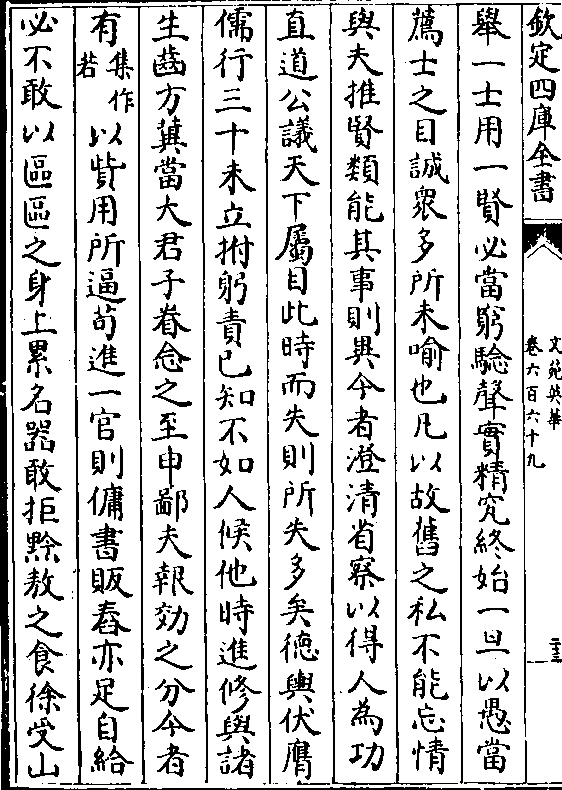 欽定四庫全書
文苑英華
卷六百六十九
舉一士用一賢必當窮驗聲實精究終始一旦以愚當
薦士之目誠衆多所未喻也凡以故舊之私不能忘情
與夫推賢類能其事則異今者澄清省察以得人為功
直道公議天下屬目此時而失則所失多矣德輿伏膺
儒行三十未立拊躬責已知不如人候他時進修與諸
生齒方冀當大君子眷念之至申鄙夫報効之分今者
有集作若以貲用所逼茍進一官則傭書販舂亦足自給
必不敢以區區之身上累名器敢拒黔敖之食徐受山